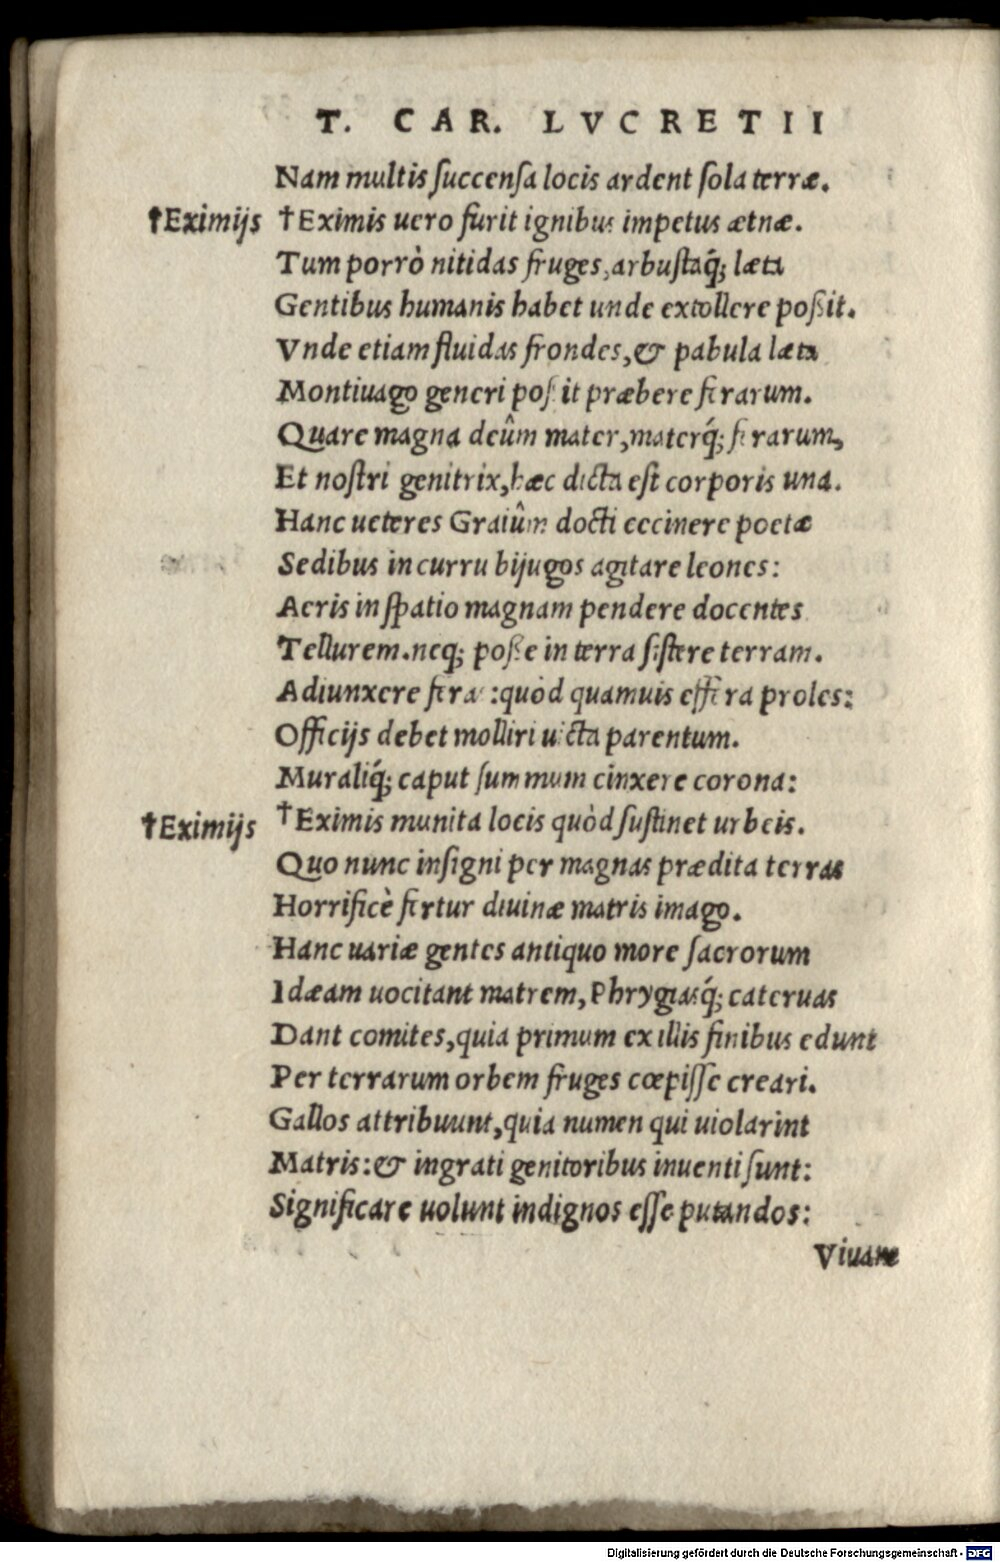 T. CAR. LVCRETII
Nam multis ſuccenſa locis ardent ſola terræ.
†Eximijs †Eximis uero furit ignibus impetus ætnæ.
Tum porrò nitidas fruges, arbuſtaq́; læta
Gentibus humanis habet unde extollere poßit.
Vnde etiam fluidas frondes, & pabula læta
Montiuago generi poſsit præbere ferarum.
Quare magna deûm mater, materq́; ferarum,
Et noſtri genitrix, hæc dicta eſt corporis una.
Hanc ueteres Graiûm docti cecinere poetæ
Sedibus in curru bijugos agitare leones:
Aeris in ſpatio magnam pendere docentes
Tellurem. neq; poße in terra ſiſtere terram.
Adiunxere feras: quòd quamuis effera proles:
Officijs debet molliri uicta parentum.
Muraliq́; caput ſummum cinxere corona:
†Eximijs †Eximis munita locis quòd ſuſtinet urbeis.
Quo nunc inſigni per magnas prædita terras
Horrificè fertur diuinæ matris imago.
Hanc uariæ gentes antiquo more ſacrorum
Idæam uocitant matrem, Phrygiasq́; cateruas
Dant comites, quia primum ex illis finibus edunt
Per terrarum orbem fruges cœpiſſe creari.
Gallos attribuunt, quia numen qui uiolarint
Matris: & ingrati genitoribus inuenti ſunt:
Significare uolunt indignos eſſe putandos:
Viuam
Digitalisierung gefördert durch die Deutsche Forschungsgemeinschaft - DFG